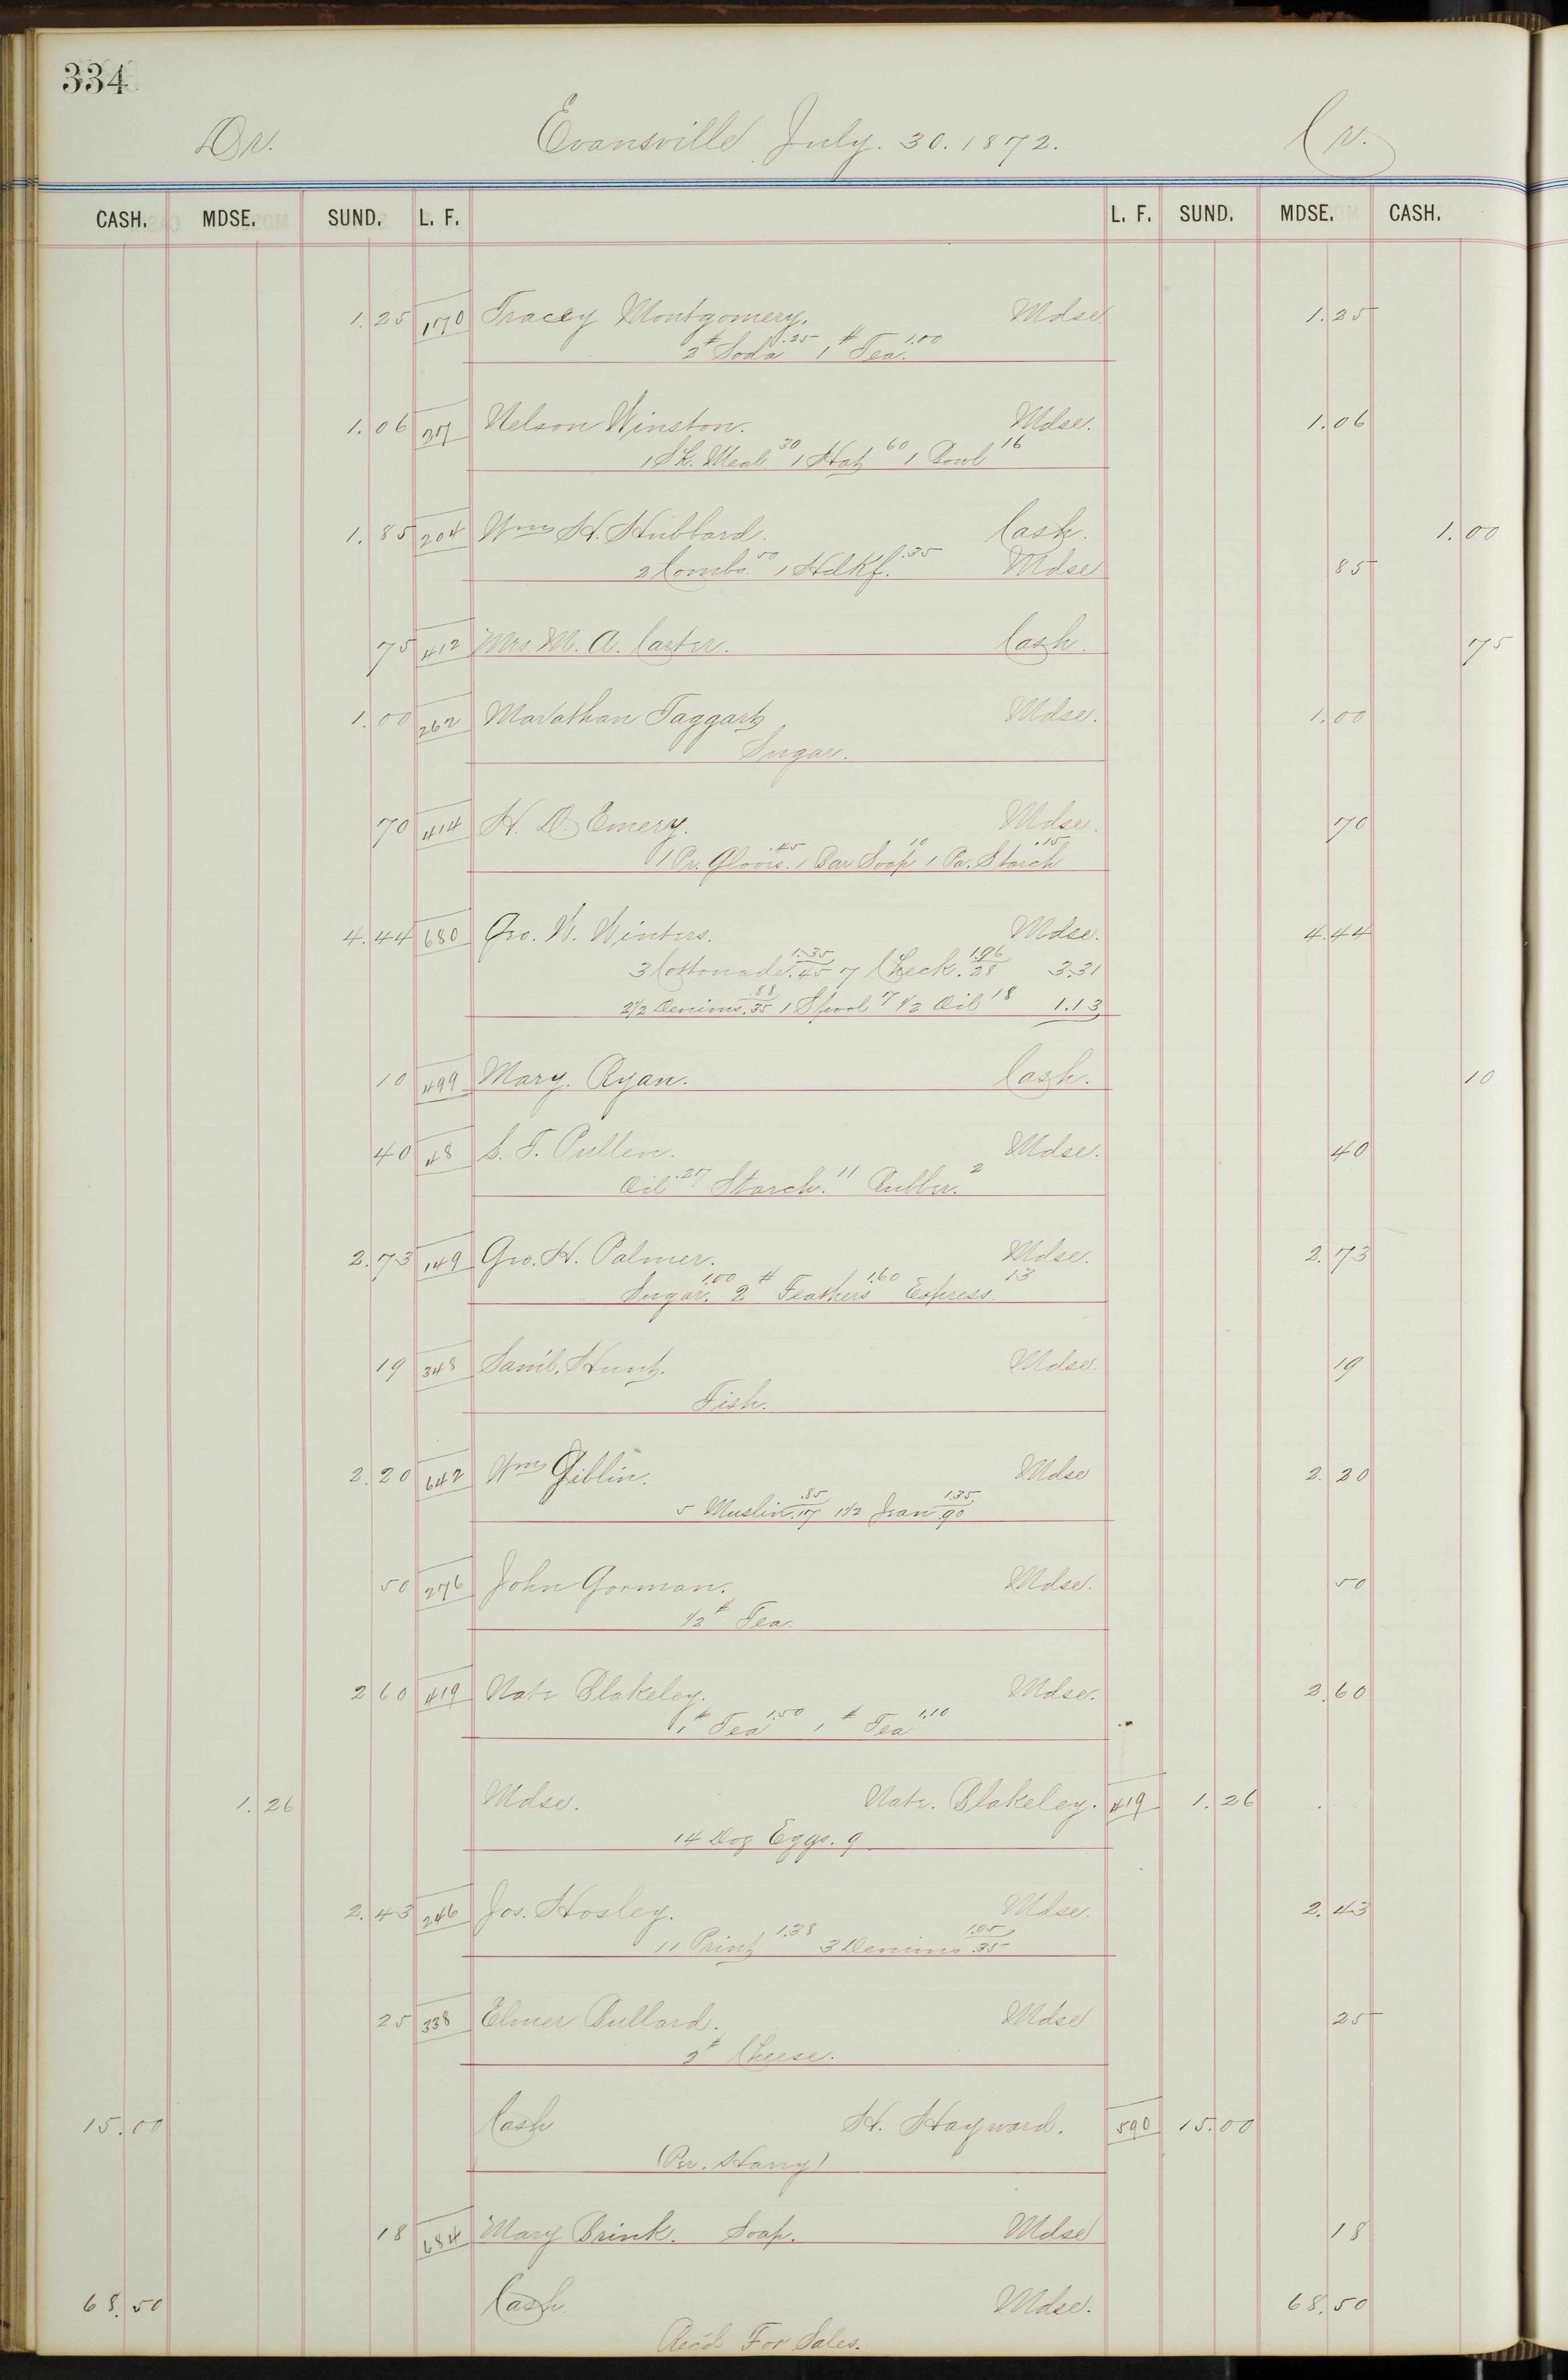 334
Dr. Evansville July. 30. 1872. Cr.
CASH. MDSE. SUND. L. F. L. F. SUND. MDSE. CASH.
1.25 170 Tracey Montgomery. Mdse 1.25
2# Soda .25 1# Tea. 1.00
1.06 27 Nelson Winston. Mdse. 1.06
1 Sk. Meal 30 1 Hat 60 1 Bowl 16
1.85 204 Wm H. Hubbard. Cash. 1.00
2 Combs. 50 1 Hdkf. .35 Mdse 85
75 412 Mrs. M. A. Carter. Cash. 75
1.00 262 Marathan Taggart Mdse. 1.00
Sugar.
70 414 H. D. Emery. Mdse. 70
1 Pr. Gloves. .45 1 Bar Soap 10 1 Pa. Starch .15
4.44 680 Geo. W. Winters. Mdse. 4.44
3 Cottonade 1.35 .45 7 Check. 1.96 28 3.31
2 1/2 Denims. .88 .35 1 Spool 7 1/2 Oil 18 1.13
10 499 Mary. Ryan. Cash. 10
40 48 S. T. Pullen. Mdse. 40
Oil .27 Starch. 11 Rubber. 2
2.73 149 Geo. H. Palmer. Mdse. 2.73
Sugar. 1.00 2# Feathers 1.60 Express. 13
19 348 Saml. Hunt. Mdse. 19
Fish.
2.20 642 Wm Giblin. Mdse 2.20
5 Muslin .85 .17 1 1/2 Jean 1.35 .90
50 276 John Gorman. Mdse. 50
1/2# Tea.
2 60 419 Nate Blakeley. Mdse. 2.60
1# Tea 1.50 1# Tea 1.10
1.26 Mdse. Nate. Blakeley. 419 1.26
14 Doz Eggs. 9
2.43 246 Jos. Hosley. Mdse. 2.43
11 Print 1.38 3 Denims 1.05 .35
25 338 Elmer Bullard. Mdse 25
2# Cheese.
15.00 Cash H. Hayward. 590 15.00
(Per. Harry)
18 684 Mary Brink. Soap. Mdse 18
68.50 Cash. Mdse. 68.50
Rec'd For Sales.